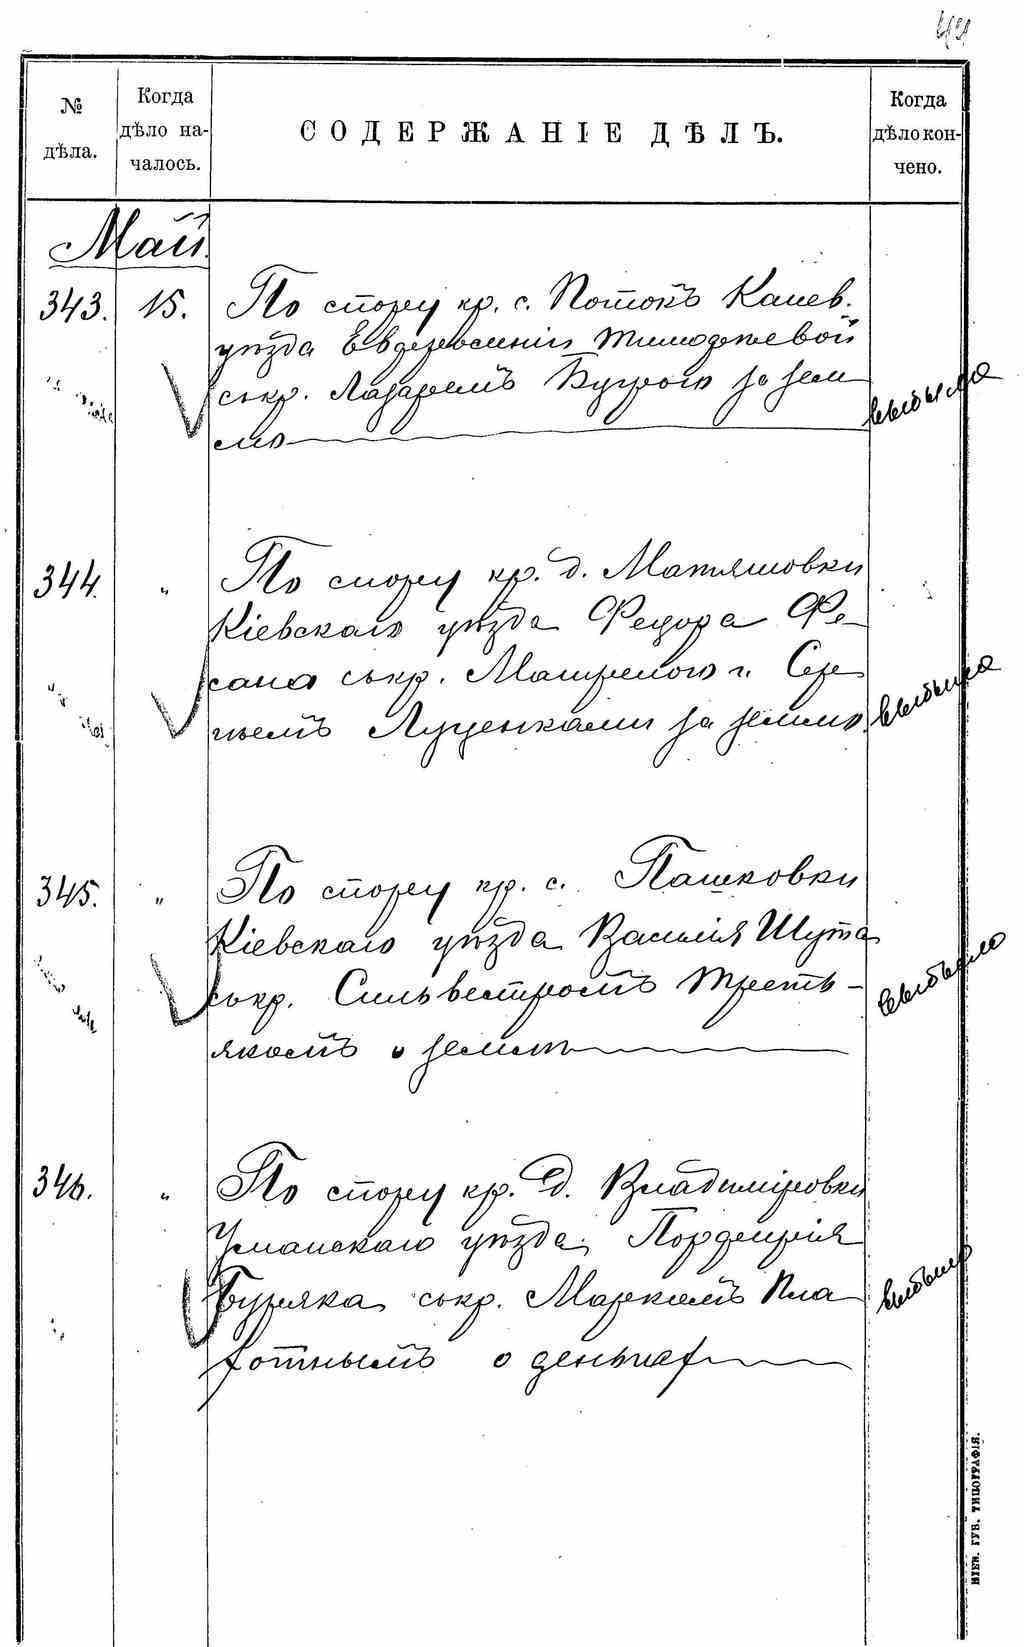 № дѣла.
Когда дѣло на-
чалось.
СОДЕРЖАНІЕ ДѢЛЪ.
Когда дѣло кон-
чено.
Май.
343. 15. По спору кр. с. Потокъ Канев.
уѣзда Евдоксеніи Тимофеевой
съ кр. Лазаремъ Бугрою за зем
лю
выбыло
344. " По спору кр. д. Матяшовки
Кіевскаго уѣзда Федора Фе
сана съ кр. Матреною и Сер
гѣемъ Луценками за землю
выбыло
345. " По спору кр. с. Пашковки
Кіевскаго уѣзда Василія Шута
съ кр. Сильвестромъ Треть-
якомъ о землѣ
выбыло
346. " По спору кр. д. Владиміровки
Уманскаго уѣзда Порфирія
Буряка съ кр. Маркомъ Пла
хотнымъ о деньгах
выбыло
КІЕВ. ГУБ. ТИПОГРАФІЯ.